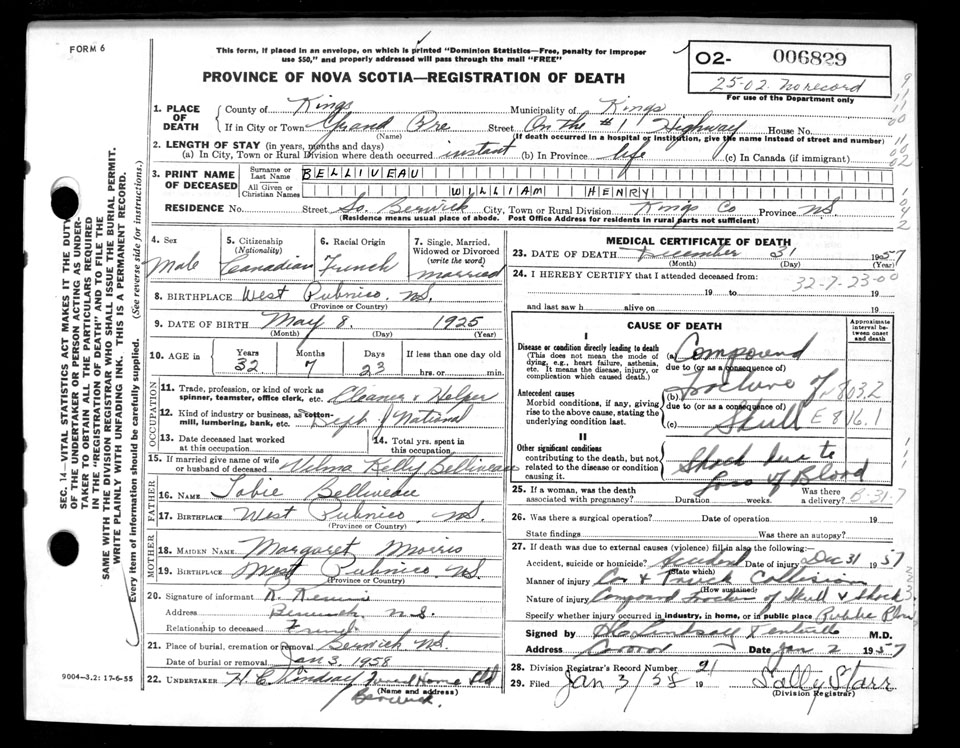 FORM 6
This form, if placed in an envelope, on which is printed "Dominion Statistics—Free, penalty for improper
use $50," and properly addressed will pass through the mail "FREE"
PROVINCE OF NOVA SCOTIA—REGISTRATION OF DEATH
02- 006829
25-02 no record
For use of the Department only
1. PLACE OF DEATH
County of Kings Municipality of Kings
If in City or Town Grand Pre Street On the #1 Highway House No.
(Name) (If death occurred in a hospital or institution, give name instead of street and number)
2. LENGTH OF STAY (in years, months and days)
(a) In City, Town or Rural Division where death occurred instant (b) In Province life (c) In Canada (if immigrant)
3. PRINT NAME OF DECEASED
Surname or Last Name BELLIVEAU
All Given or Christian Names WILLIAM HENRY
RESIDENCE No. Street So. Berwick City, Town or Rural Division Kings Co Province NS
(Residence means usual place of abode. Post Office Address for residents in rural parts not sufficient)
4. Sex Male
5. Citizenship (Nationality) Canadian
6. Racial Origin French
7. Single, Married, Widowed or Divorced (write the word) married
8. BIRTHPLACE West Pubnico, NS.
(Province or Country)
9. DATE OF BIRTH May 8. 1925
(Month) (Day) (Year)
10. AGE in Years 32 Months 7 Days 23 If less than one day old hrs. or min.
OCCUPATION
11. Trade, profession, or kind of work as spinner, teamster, office clerk, etc. Cleaner & Helper
12. Kind of industry or business, as cotton-mill, lumbering, bank, etc. Dept of National
13. Date deceased last worked at this occupation
14. Total yrs. spent in this occupation
15. If married give name of wife or husband of deceased Vilma Kelly Belliveau
FATHER
16. NAME Tobie Belliveau
17. BIRTHPLACE West Pubnico NS.
(Province or Country)
MOTHER
18. MAIDEN NAME Margaret Morris
19. BIRTHPLACE West Pubnico NS.
(Province or Country)
20. Signature of informant
Address Berwick N.S.
Relationship to deceased Friend
21. Place of burial, cremation or removal Berwick NS
Date of burial or removal Jan 3. 1958
22. UNDERTAKER H. C. Lindsay Funeral Home Ltd
(Name and address)
Berwick.
9004—3.2: 17-6-55
MEDICAL CERTIFICATE OF DEATH
23. DATE OF DEATH December 31 1957
(Month) (Day) (Year)
24. I HEREBY CERTIFY that I attended deceased from:
32-7-23-00
19 to 19
and last saw h alive on 19
CAUSE OF DEATH
Approximate interval between onset and death
I
Disease or condition directly leading to death
(This does not mean the mode of dying, e.g., heart failure, asthenia, etc. It means the disease, injury, or complication which caused death.)
(a) Compound
due to (or as a consequence of)
Antecedent causes
Morbid conditions, if any, giving rise to the above cause, stating the underlying condition last.
(b) fracture of N803.2
due to (or as a consequence of)
(c) Skull E816.1
II
Other significant conditions
contributing to the death, but not related to the disease or condition causing it.
Shock due to
loss of Blood
25. If a woman, was the death associated with pregnancy? Duration weeks. Was there a delivery? 8-31-7
26. Was there a surgical operation? Date of operation 19
State findings Was there an autopsy?
27. If death was due to external causes (violence) fill in also the following:
Accident, suicide or homicide? Accident Date of injury Dec 31 1957
(State which)
Manner of injury Car & Truck Collision
(How sustained)
Nature of injury Compound fracture of Skull & Shock
Specify whether injury occurred in industry, in home, or in public place Public Place
Signed by Kentville M.D.
Address Coroner Date Jan 2 1957
28. Division Registrar's Record Number 91
29. Filed Jan 3/58 19 Sally Starr
(Division Registrar)
SEC. 14—VITAL STATISTICS ACT MAKES IT THE DUTY
OF THE UNDERTAKER OR PERSON ACTING AS UNDER-
TAKER TO OBTAIN ALL THE PARTICULARS REQUIRED
IN THE "REGISTRATION OF DEATH" AND TO FILE THE
SAME WITH THE DIVISION REGISTRAR WHO SHALL ISSUE THE BURIAL PERMIT.
WRITE PLAINLY WITH UNFADING INK. THIS IS A PERMANENT RECORD.
Every item of information should be carefully supplied. (See reverse side for instructions.)